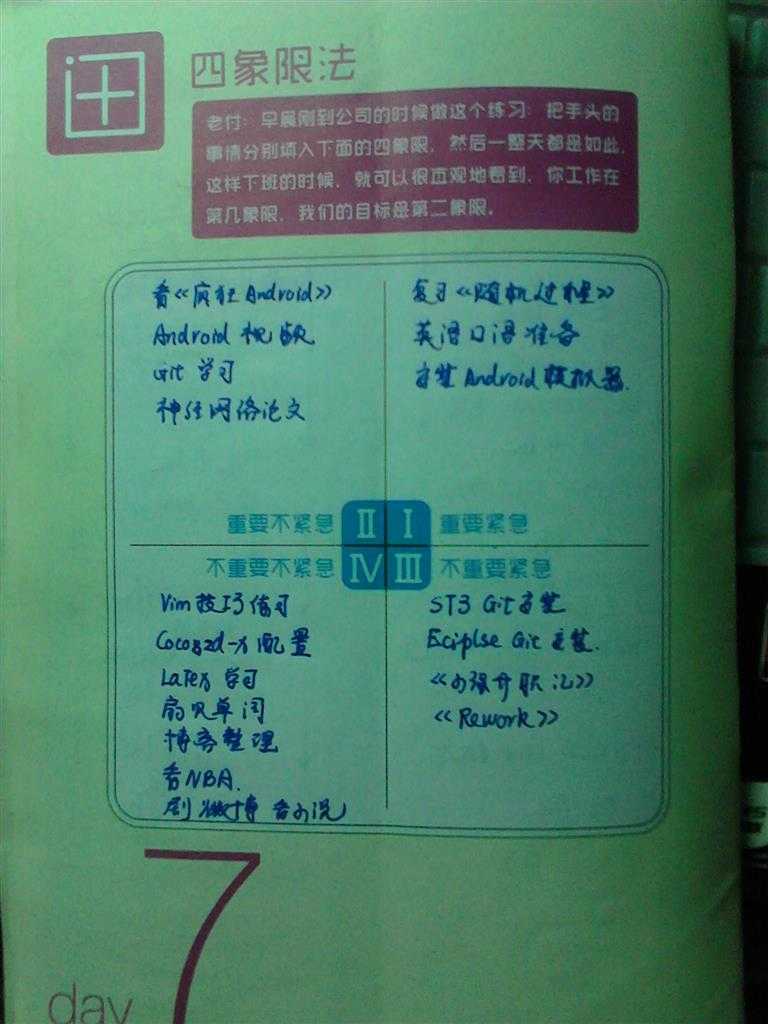 四象限法
老付：早晨刚到公司的时候做这个练习：把手头的
事情分别填入下面的四象限，然后一整天都是如此，
这样下班的时候，就可以很直观地看到，你工作在
第几象限，我们的目标是第二象限。
看《疯狂Android》
Android 视频
Git 学习
神经网络论文
复习《随机过程》
英语口语准备
安装 Android 模拟器.
重要不紧急 II I 重要紧急
不重要不紧急 IV III 不重要紧急
Vim 技巧练习
Cocos2d-x 配置
LaTeX 学习
扇贝单词
博客整理
看NBA.
刷微博 看小说
ST3 Git 安装
Eciplse Git 安装.
《小强升职记》
《Rework》
day 7